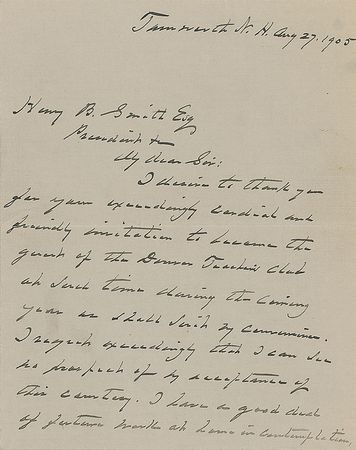 Tamworth N. H. Aug 27. 1905
Henry B. Smith Esq
President &
My dear Sir:
I desire to thank you
for your exceedingly cordial and
friendly invitation to become the
guest of the Denver Teachers Club
at such time during the coming
year as shall suit my convenience.
I regret exceedingly that I can see
no prospect of my acceptance of
this courtesy. I have a good deal
of future work at home in contemplation,